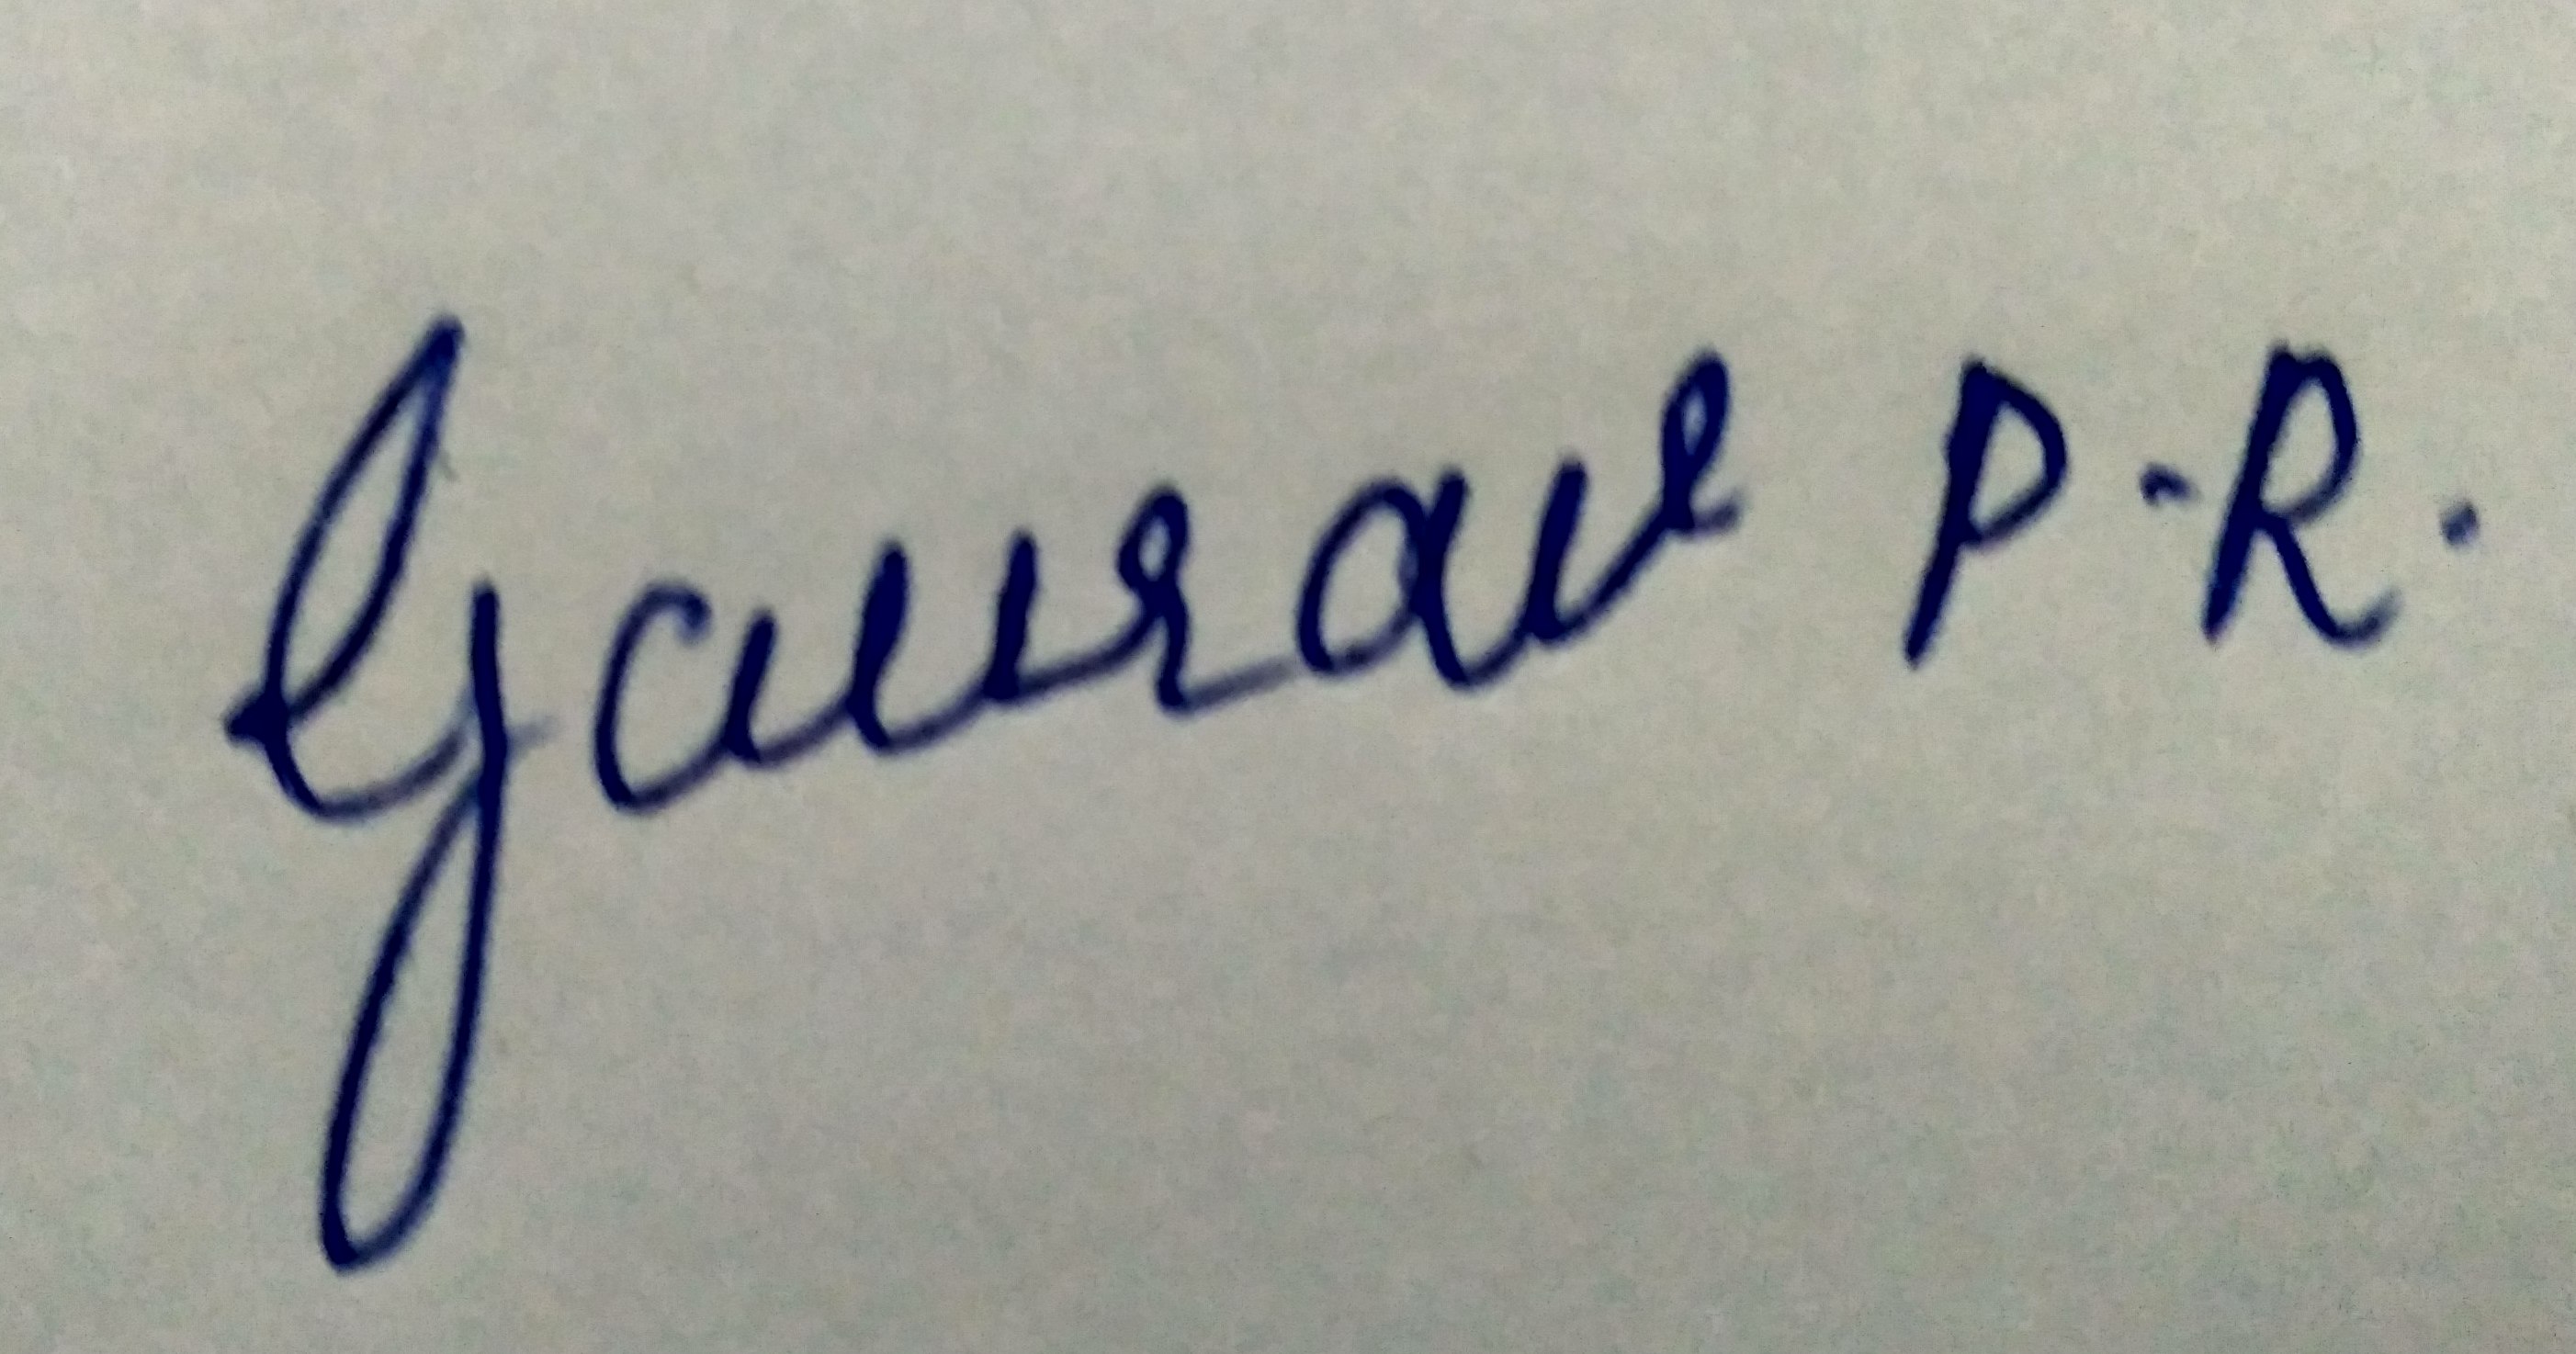 Gaurav P.R.